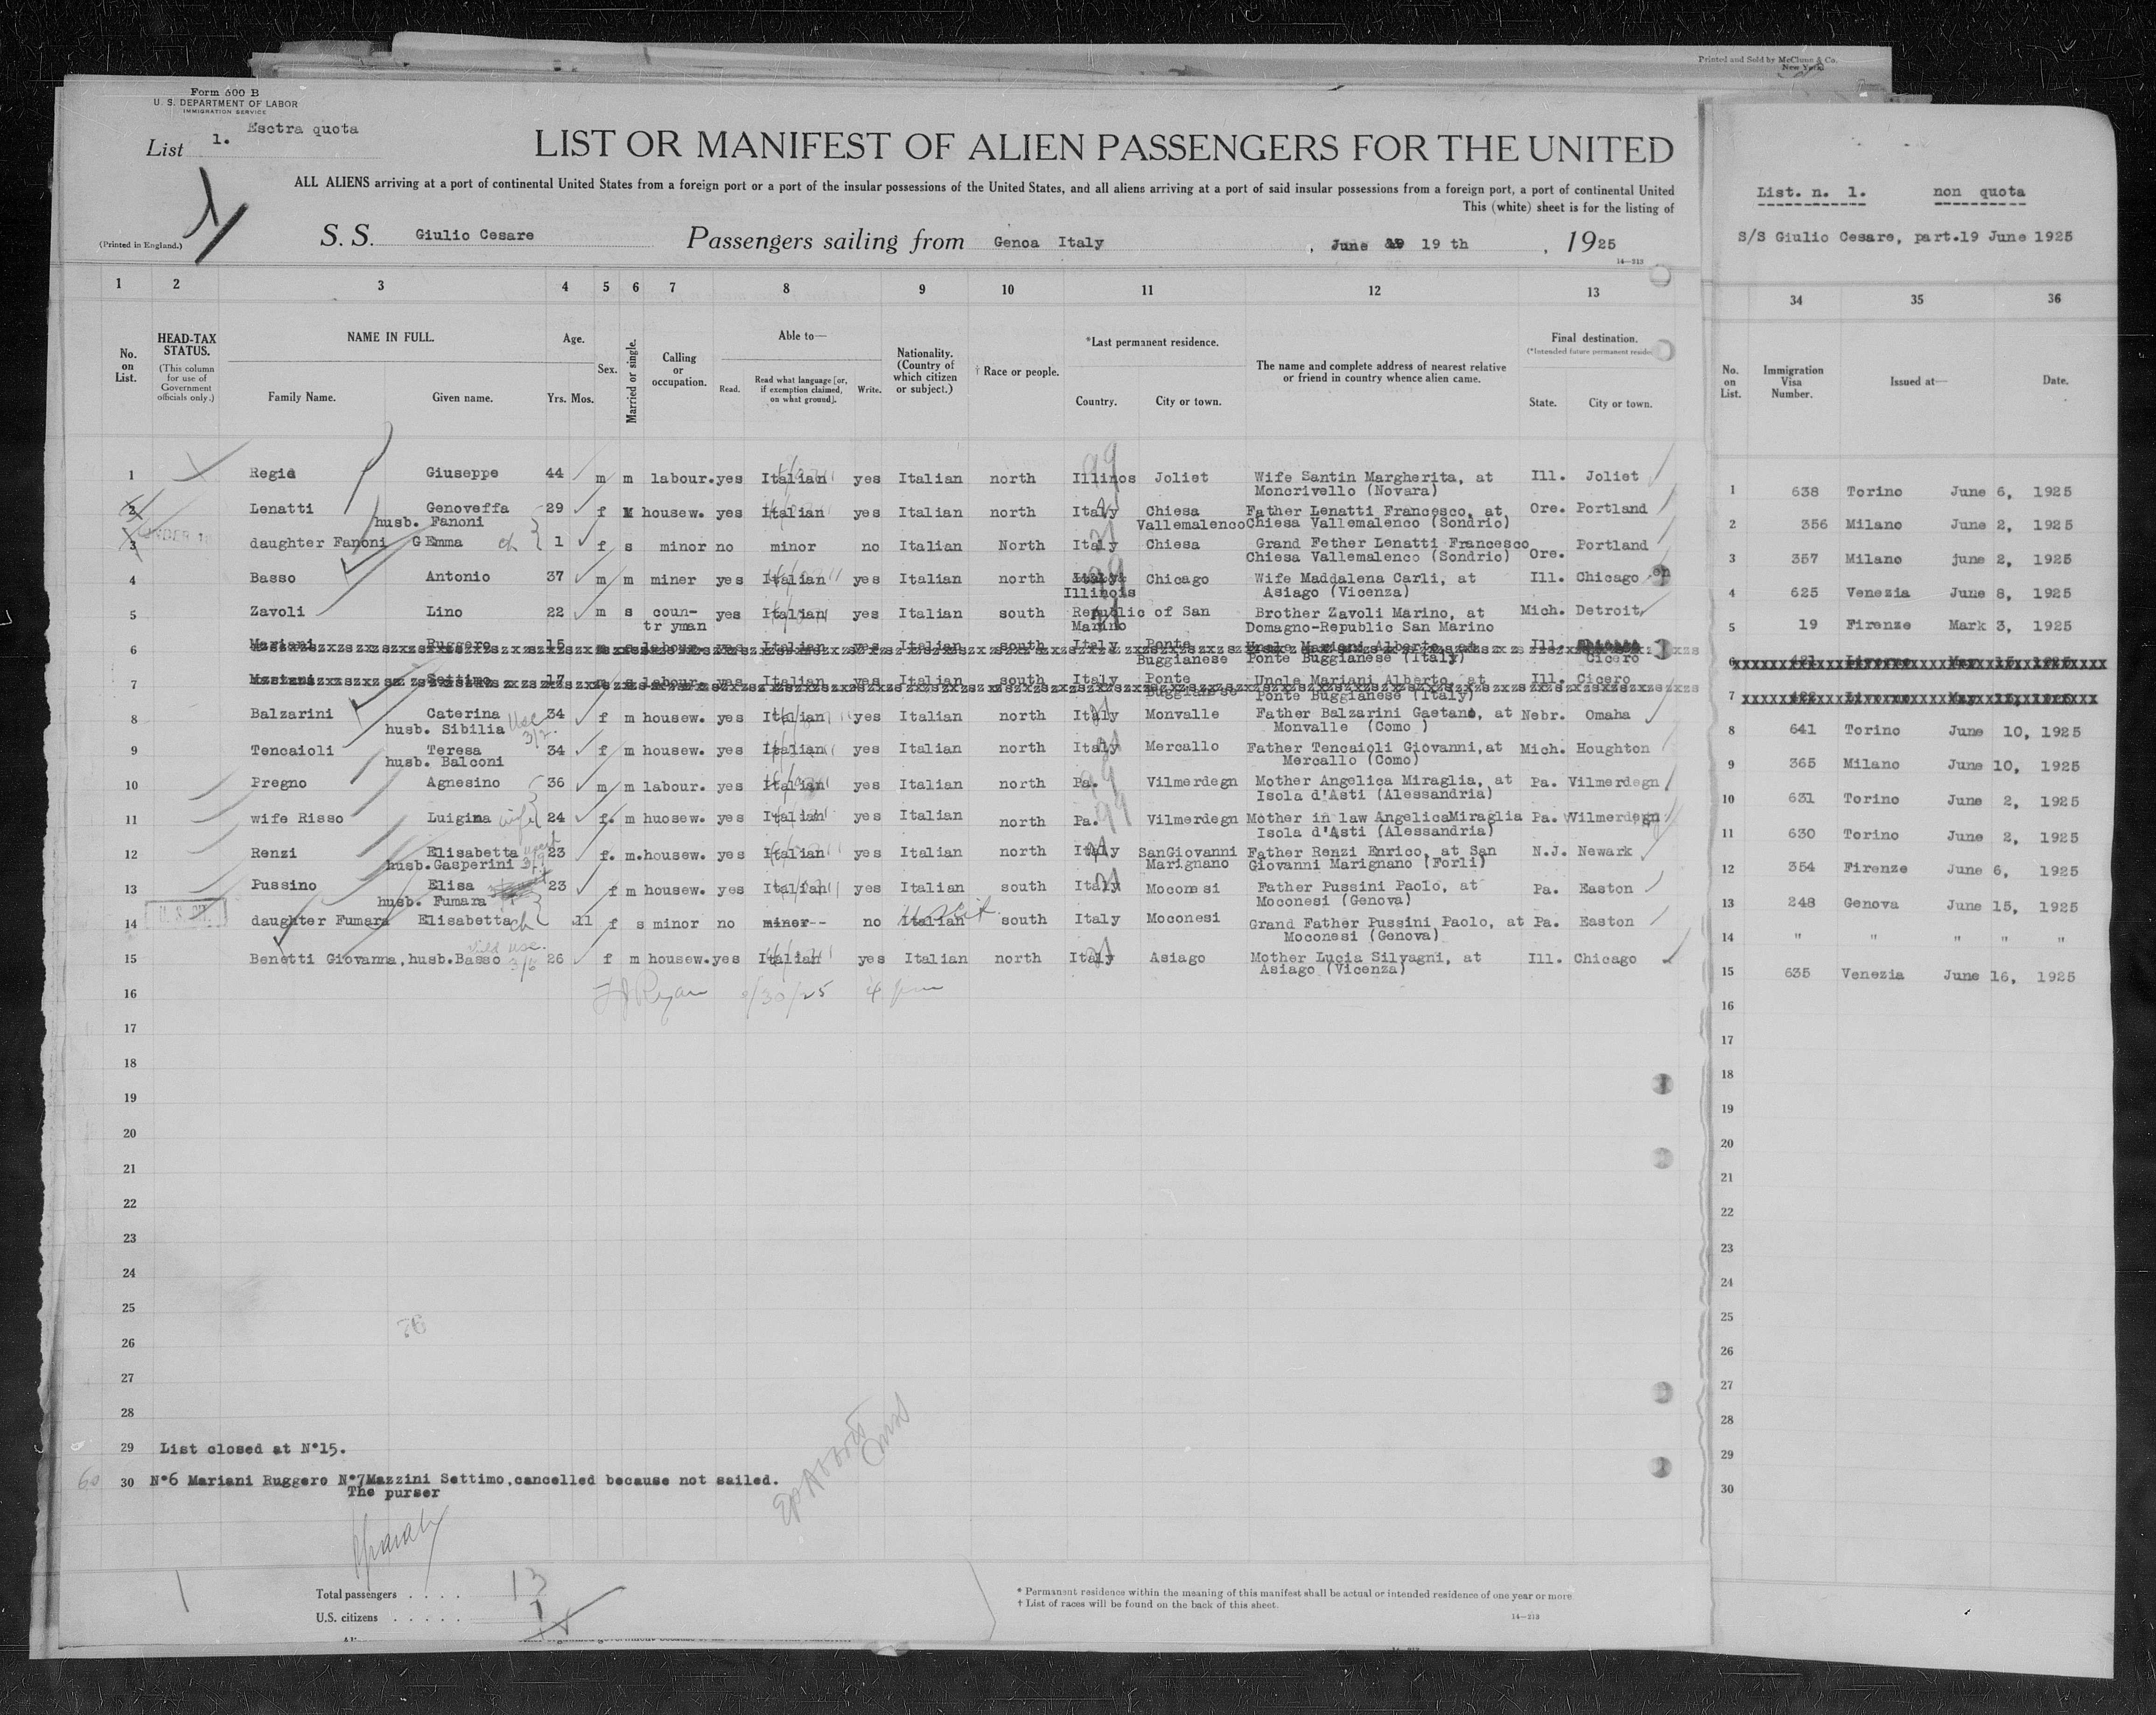 Printed and Sold by McClunn & Co.
New York
Form 600 B
U. S. DEPARTMENT OF LABOR
IMMIGRATION SERVICE
List 1. Esctra quota
LIST OR MANIFEST OF ALIEN PASSENGERS FOR THE UNITED
ALL ALIENS arriving at a port of continental United States from a foreign port or a port of the insular possessions of the United States, and all aliens arriving at a port of said insular possessions from a foreign port, a port of continental United
This (white) sheet is for the listing of
(Printed in England.)
S. S. Giulio Cesare Passengers sailing from Genoa Italy , June 19 th , 1925
14—213
1 2 3 4 5 6 7 8 9 10 11 12 13
No. on List.
HEAD-TAX STATUS.
(This column for use of Government officials only.)
NAME IN FULL.
Family Name. Given name.
Age.
Yrs. Mos.
Sex.
Married or single.
Calling or occupation.
Able to—
Read. Read what language [or, if exemption claimed, on what ground]. Write.
Nationality. (Country of which citizen or subject.)
† Race or people.
*Last permanent residence.
Country. City or town.
The name and complete address of nearest relative or friend in country whence alien came.
Final destination.
(*Intended future permanent reside
State. City or town.
1 Regis Giuseppe 44 m m labour. yes Italian yes Italian north Illinos Joliet Wife Santin Margherita, at Ill. Joliet
Moncrivello (Novara)
2 Lenatti Genoveffa 29 f M housew. yes Italian yes Italian north Italy Chiesa Father Lenatti Francesco, at Ore. Portland
husb. Fanoni Vallemalenco Chiesa Vallemalenco (Sondrio)
3 daughter Fanoni G Emma ch 1 f s minor no minor no Italian North Italy Chiesa Grand Fether Lenatti Francesco Ore. Portland
Chiesa Vallemalenco (Sondrio)
4 Basso Antonio 37 m m miner yes Italian yes Italian north Italy Chicago Wife Maddalena Carli, at Ill. Chicago
Illinois Asiago (Vicenza)
5 Zavoli Lino 22 m s coun- yes Italian yes Italian south Republic of San Brother Zavoli Marino, at Mich. Detroit
tr yman Marino Domagno-Republic San Marino
6 Mariani Ruggero 15 m s labour. yes Italian yes Italian south Italy Ponte Uncle Mariani Alberto, at Ill. Chicago
Buggianese Ponte Buggianese (Italy) Cicero
7 Mariani Settimo 17 s labour. yes Italian yes Italian south Italy Ponte Uncle Mariani Alberto, at Ill. Cicero
Buggianese Ponte Buggianese (Italy)
8 Balzarini Caterina 34 f m housew. yes Italian yes Italian north Italy Monvalle Father Balzarini Gaetano, at Nebr. Omaha
husb. Sibilia Monvalle (Como )
9 Tencaioli Teresa 34 f m housew. yes Italian yes Italian north Italy Mercallo Father Tencaioli Giovanni, at Mich. Houghton
husb. Balconi Mercallo (Como)
10 Pregno Agnesino 36 m m labour. yes Italian yes Italian north Pa. Vilmerdegn Mother Angelica Miraglia, at Pa. Vilmerdegn
Isola d'Asti (Alessandria)
11 wife Risso Luigina wife 24 f. m huosew. yes Italian yes Italian north Pa. Vilmerdegn Mother in law AngelicaMiraglia Pa. Vilmerdegn
Isola d'Asti (Alessandria)
12 Renzi Elisabetta 23 f. m. housew. yes Italian yes Italian north Italy SanGiovanni Father Renzi Enrico, at San N.J. Newark
husb. Gasperini Marignano Giovanni Marignano (Forli)
13 Pussino Elisa 23 f m housew. yes Italian yes Italian south Italy Moconesi Father Pussini Paolo, at Pa. Easton
husb. Fumara Moconesi (Genova)
14 daughter Fumara Elisabetta ch 11 f s minor no minor-- no Italian south Italy Moconesi Grand Father Pussini Paolo, at Pa. Easton
U S Cit. Moconesi (Genova)
15 Benetti Giovanna, husb. Basso 26 f m housew. yes Italian yes Italian north Italy Asiago Mother Lucia Silvagni, at Ill. Chicago
Asiago (Vicenza)
16 Ryan 6/30/25 4 pm
17
18
19
20
21
22
23
24
25
26
27
28
29 List closed at N°15.
30 N°6 Mariani Ruggero N°7 Mazzini Settimo, cancelled because not sailed.
The purser
Total passengers . . . . 13
U.S. citizens . . . . . 1
* Permanent residence within the meaning of this manifest shall be actual or intended residence of one year or more
† List of races will be found on the back of this sheet.
14—213
List. n. 1. non quota
S/S Giulio Cesare, part. 19 June 1925
34 35 36
No. on List. Immigration Visa Number. Issued at— Date.
1 638 Torino June 6, 1925
2 356 Milano June 2, 1925
3 357 Milano june 2, 1925
4 625 Venezia June 8, 1925
5 19 Firenze Mark 3, 1925
6 421 Livorno May 15, 1925
7 422 Livorno May 15, 1925
8 641 Torino June 10, 1925
9 365 Milano June 10, 1925
10 631 Torino June 2, 1925
11 630 Torino June 2, 1925
12 354 Firenze June 6, 1925
13 248 Genova June 15, 1925
14 " " " " "
15 635 Venezia June 16, 1925
16
17
18
19
20
21
22
23
24
25
26
27
28
29
30